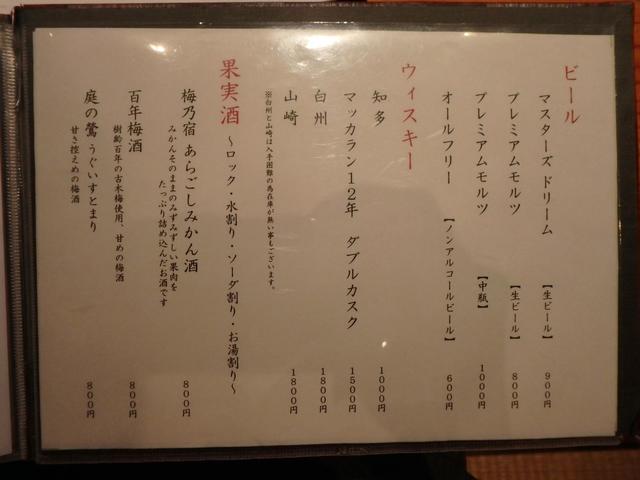 ビール
マスターズ ドリーム 【生ビール】 900円
プレミアムモルツ 【生ビール】 800円
プレミアムモルツ 【中瓶】 1000円
オールフリー 【ノンアルコールビール】 600円
ウィスキー
知多 1000円
マッカラン12年 ダブルカスク 1500円
白州 1800円
山崎 1800円
※白州と山崎は入手困難の為在庫が無い事もございます。
果実酒 ～ロック・水割り・ソーダ割り・お湯割り～
梅乃宿 あらごしみかん酒 800円
みかんそのままのみずみずしい果肉を
たっぷり詰め込んだお酒です
百年梅酒 800円
樹齢百年の古木梅使用、甘めの梅酒
庭の鶯 うぐいすとまり 800円
甘さ控えめの梅酒